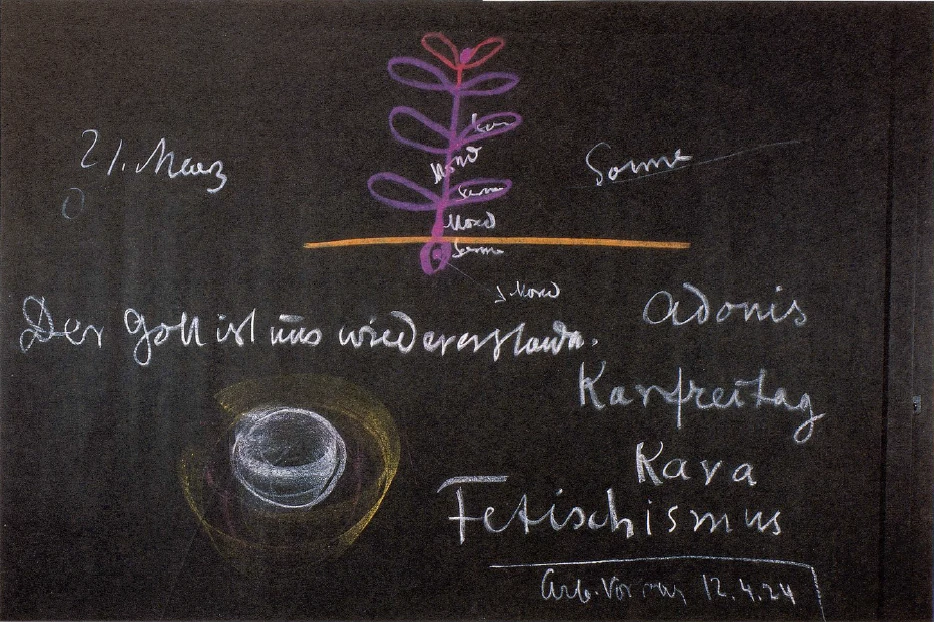 21. Maerz
Mond
Sonne
Sonne
Mond
Sonne
Mond
Der Gott ist uns wiedererstandn.
Adonis
Karfreitag
Kara
Fetischismus
Arb. Vortrag 12.4.24